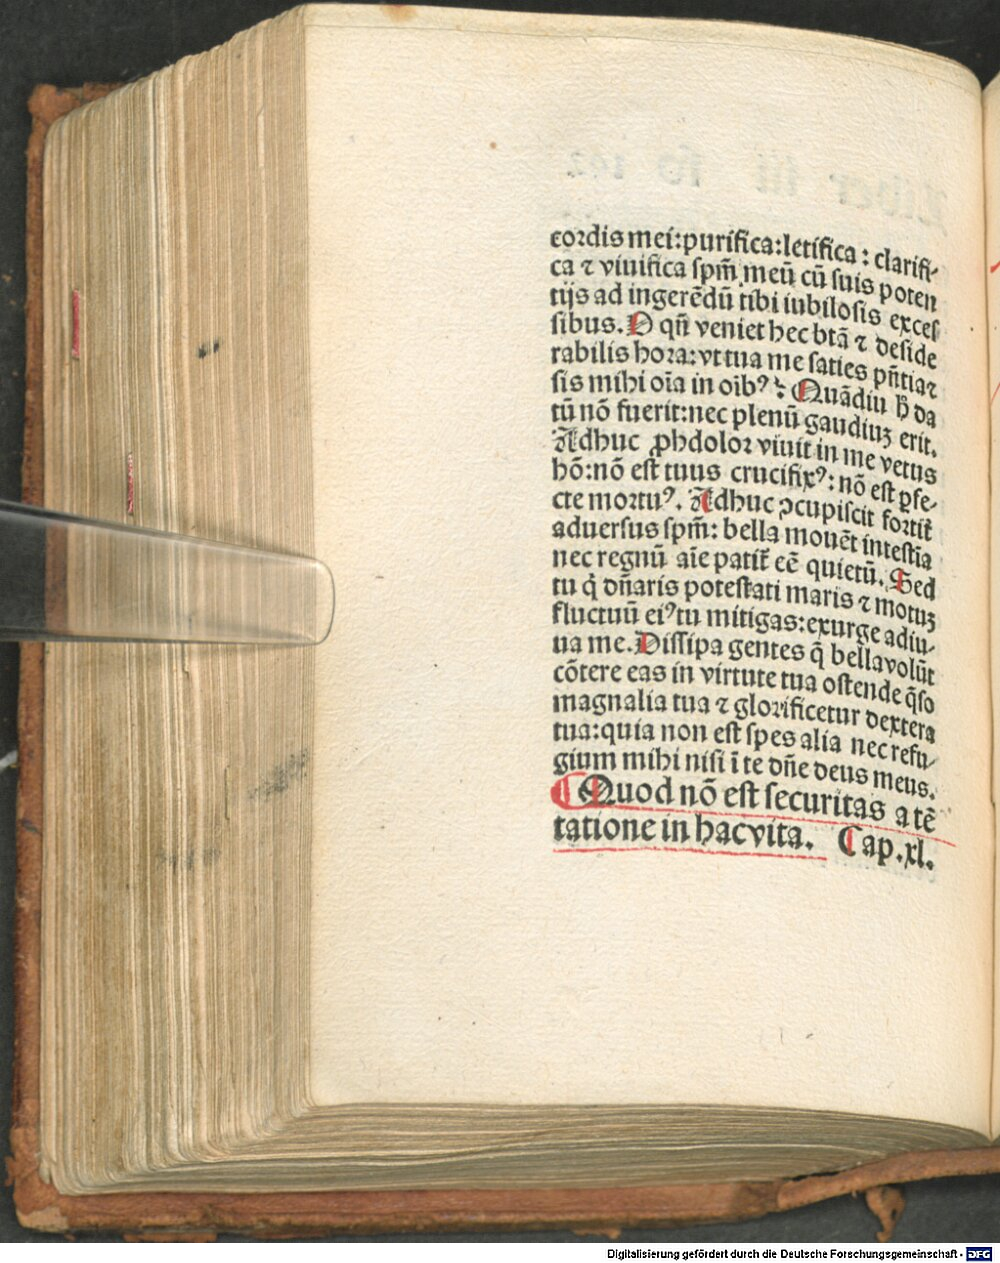 cordis mei:purifica:letifica : clarifi-
ca ⁊ viuifica spm̄ meū cū suis poten
tijs ad ingerēdū tibi iubilosis exces
sibus. O qn̄ veniet hec btā ⁊ deside
rabilis hora: vt tua me saties pn̄tia ⁊
sis mihi oīa in oībꝰ : Quādiu h̄ da
tū nō fuerit:nec plenū gaudiuꝫ erit.
Adhuc ꝓhdolor viuit in me vetus
hō:nō est tuus crucifixꝰ: nō est ꝑfe-
cte mortuꝰ. Adhuc ꝯcupiscit fortit̄
aduersus spm̄: bella mouēt intestīa
nec regnū aīe patit̄ eē quietū. Sed
tu q̇ dn̄aris potestati maris ⁊ motuꝫ
fluctuū eiꝰ tu mitigas:exurge adiu-
ua me. Dissipa gentes q̄ bella volūt
cōtere eas in virtute tua ostende q̄so
magnalia tua ⁊ glorificetur dextera
tua:quia non est spes alia nec refu-
gium mihi nisi ī te dn̄e deus meus.
Quod nō est securitas a tē
tatione in hac vita. Cap.xl.
Digitalisierung gefördert durch die Deutsche Forschungsgemeinschaft - DFG